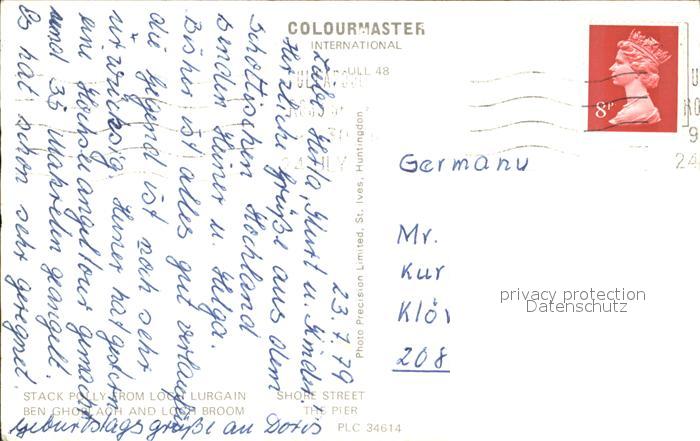 COLOURMASTER
INTERNATIONAL
ULL 48
8P
24 JLY
24
Germany
Mr.
Kur
Klö
208
privacy protection
Datenschutz
Photo Precision Limited, St. Ives, Huntingdon
23.7.79
Liebe Herta, Kurt u. Kinder.
Herzliche Grüße aus dem
Schottischen Hochland
senden Heiner u. Helga.
Bisher ist alles gut verlaufen
die Gegend ist noch sehr
urwüchsig. Heiner hat gestern
eine Hochseeangeltour gemacht
und 35 Makrelen geangelt.
Es hat schon sehr geregnet.
Geburtstagsgrüße an Doris
STACK POLLY FROM LOCH LURGAIN
SHORE STREET
BEN GHOBLACH AND LOCH BROOM
THE PIER
PLC 34614